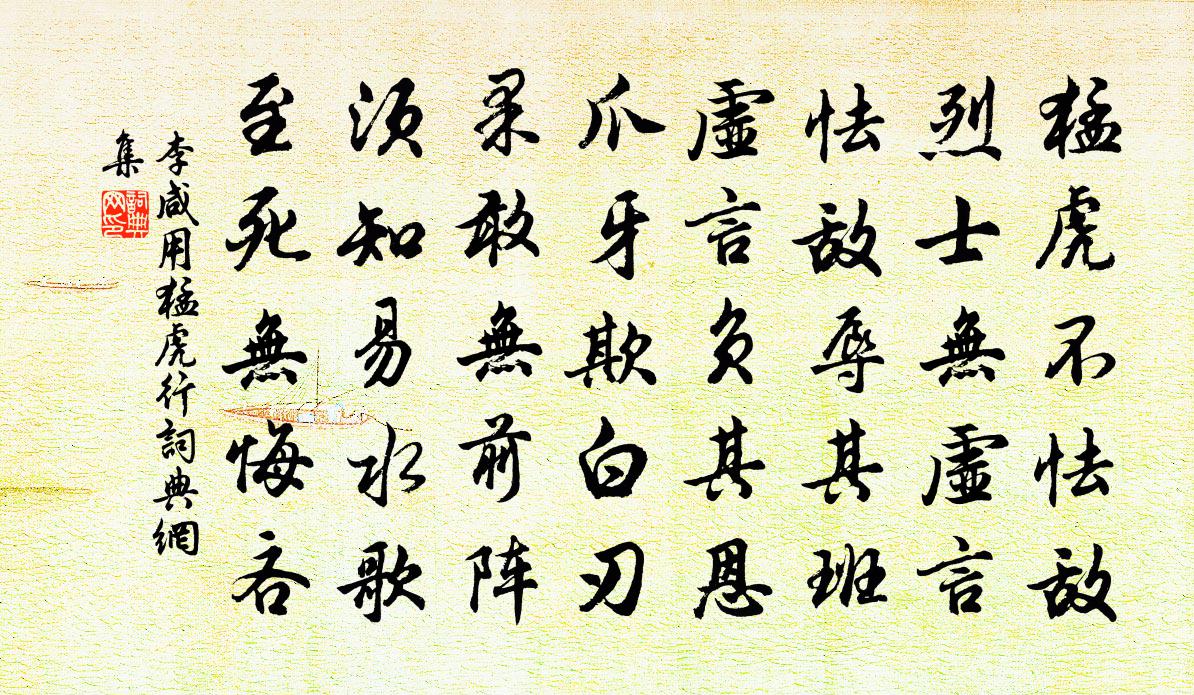 猛虎不怯敌
烈士無虛言
怯敌辱其班
虛言负其恩
爪牙欺白刃
果敢無前阵
须知易水歌
至死無悔吝
李咸用猛虎行詞典網
集
詞典
网印